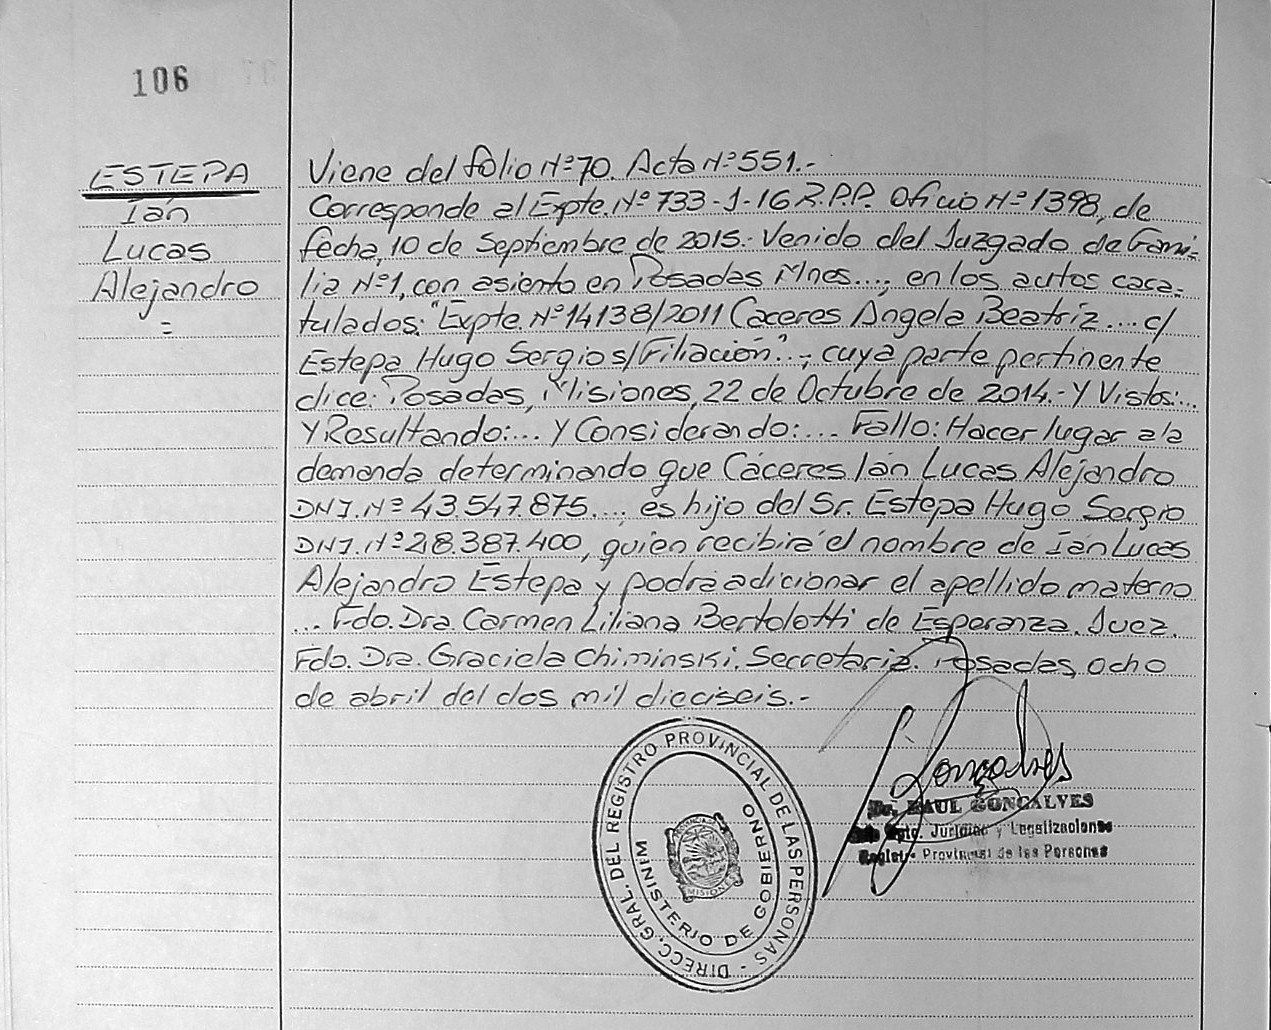 106
ESTEPA
Ián
Lucas
Alejandro
=
Viene del folio Nº 70. Acta Nº 551.-
Corresponde al Expte. Nº 733-J-16 R.P.P. Oficio Nº 1398, de
fecha, 10 de Septiembre de 2015.- Venido del Juzgado de Fami-
lia Nº1, con asiento en Posadas Mnes...; en los autos cara-
tulados: "Expte. Nº 14138/2011 Cáceres Angela Beatriz.... c/
Estepa Hugo Sergio s/Filiación"-; cuya parte pertinente
dice: Posadas, Misiones, 22 de Octubre de 2014.- Y Vistos:...
Y Resultando:... Y Considerando:... Fallo: Hacer lugar a la
demanda determinando que Cáceres Ián Lucas Alejandro
DNI. Nº 43.547.875...., es hijo del Sr. Estepa Hugo Sergio
DNI. Nº 28.387.400, quien recibirá el nombre de Ián Lucas
Alejandro Estepa y podrá adicionar el apellido materno
... Fdo. Dra. Carmen Liliana Bertolotti de Esperanza. Juez.
Fdo. Dra. Graciela Chiminski. Secretaria. Posadas, ocho
de abril del dos mil dieciseis.-
DIRECC. GRAL. DEL REGISTRO PROVINCIAL DE LAS PERSONAS -
MINISTERIO DE GOBIERNO
MISIONES
Gonçalves
Dr. RAUL GONCALVES
Dpto. Jurídico y Legalizaciones
Registro Provincial de las Personas